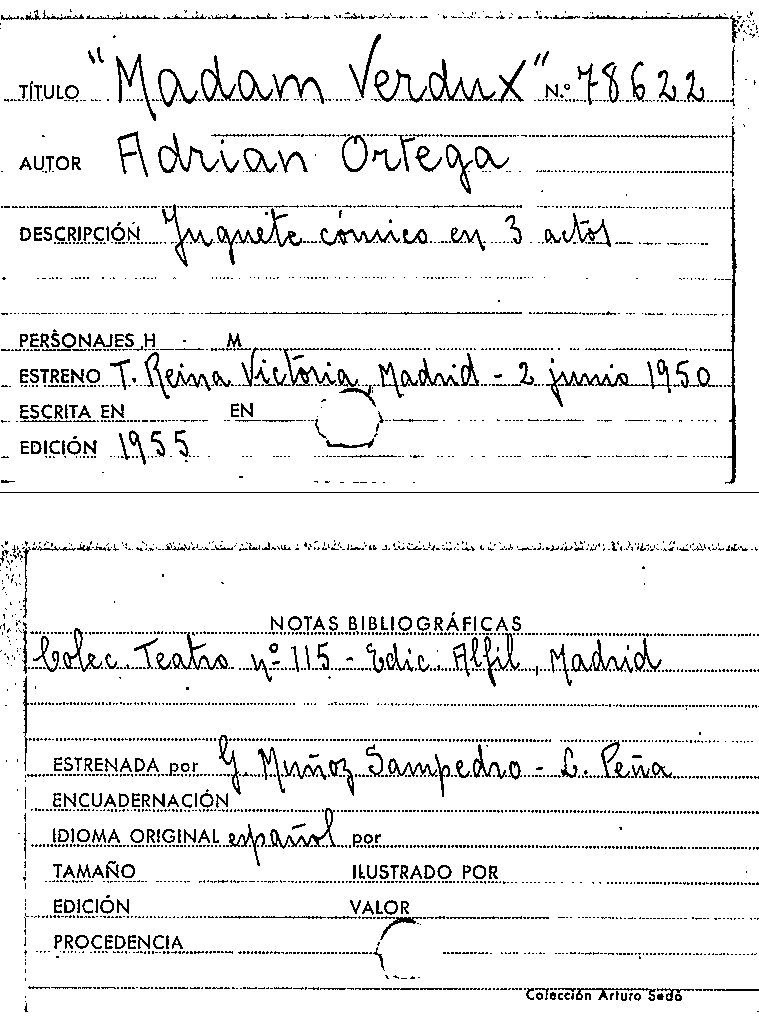 TÍTULO "Madam Verdux" N.º 78622
AUTOR Adrian Ortega
DESCRIPCIÓN Juguete cómico en 3 actos
PERSONAJES H M
ESTRENO T. Reina Victoria, Madrid - 2 junio 1950
ESCRITA EN EN
EDICIÓN 1955
NOTAS BIBLIOGRÁFICAS
Colec. Teatro nº 115 - Edic. Alfil, Madrid
ESTRENADA por G. Muñoz Sampedro - L. Peña
ENCUADERNACIÓN
IDIOMA ORIGINAL español por
TAMAÑO ILUSTRADO POR
EDICIÓN VALOR
PROCEDENCIA
Colección Arturo Sedó